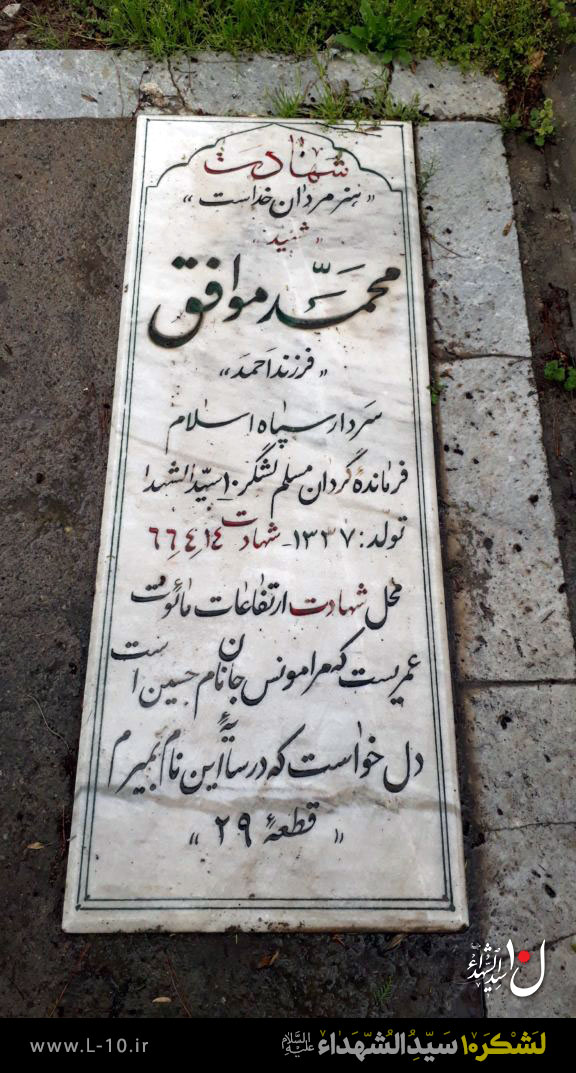 شهادت
« هنر مردان خداست »
« شهید »
محمّد موافق
« فرزند احمد »
سردار سپاه اسلام
فرماندهٔ گردان مسلم لشگر ۱۰ سیّدالشهدا
تولد: ۱۳۳۷ـ شهادت ۶۶٫۴٫۱۴
محل شهادت ارتفاعات مائوت
عمریست که مرا مونس جان نام حسین است
دل خواست که در سایهٔ این نام بمیرم
« قطعهٔ ۲۹ »
ل۱۰
سیدالشهداء
لشکر۱۰ سیّدالشّهداء علیه‌السلام
www.L-10.ir